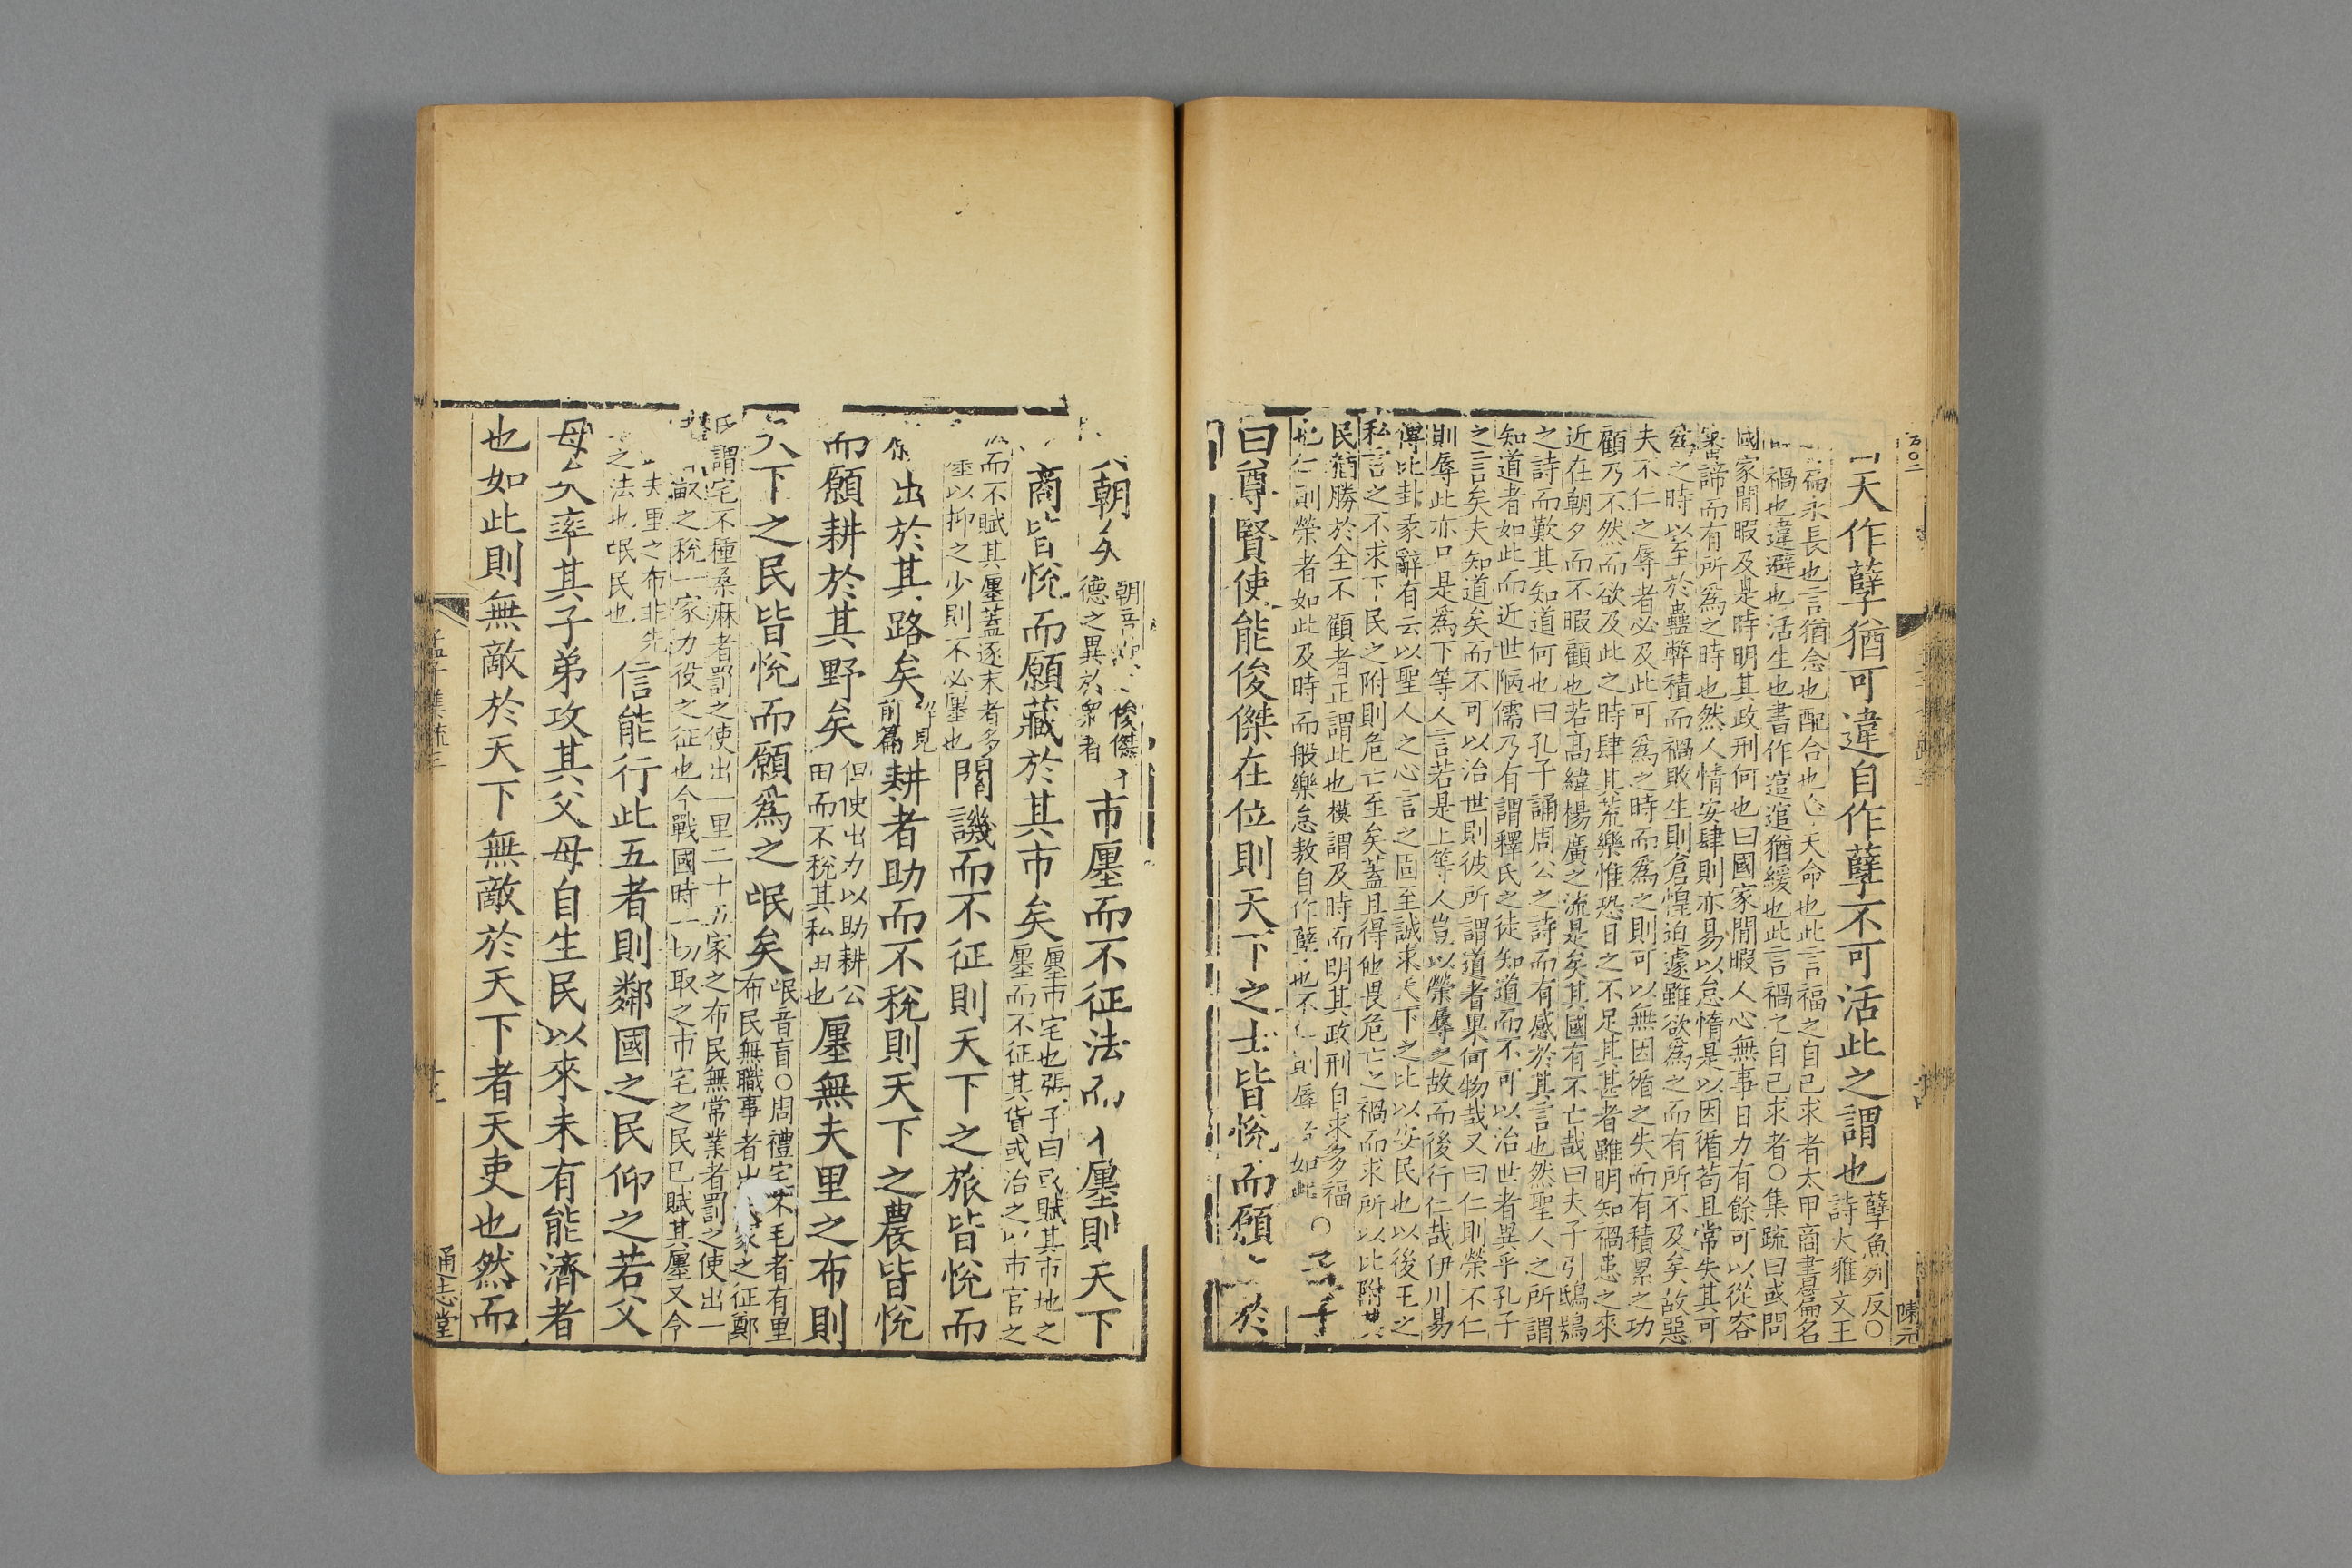 天作孽猶可違自作孽不可活此之謂也
孽魚列反○
詩大雅文王
永長也言猶念也配合也 天命也此言福之自己求者太甲商書篇名
禍也違避也活生也書作逭逭猶緩也此言禍之自己求者○集疏曰或問
國家閒暇及是時明其政刑何也曰國家閒暇人心無事日力有餘可以從容
審諦而有所爲之時也然人情安肆則亦易以怠惰是以因循苟且常失其可
爲之時以至於蠱弊積而禍敗生則倉惶迫遽雖欲爲之而有所不及矣故惡
夫不仁之辱者必及此可爲之時而爲之則可以無因循之失而有積累之功
顧乃不然而欲及此之時肆其荒樂惟恐日之不足其甚者雖明知禍患之來
近在朝夕而不暇顧也若高緯楊廣之流是矣其國有不亡哉曰夫子引鴟鴞
之詩而歎其知道何也曰孔子誦周公之詩而有感於其言也然聖人之所謂
知道者如此而近世陋儒乃有謂釋氏之徒知道而不可以治世者異乎孔子
之言矣夫知道矣而不可以治世則彼所謂道者果何物哉又曰仁則榮不仁
則辱此亦只是爲下等人言若是上等人豈以榮辱之故而後行仁哉伊川易
傳比卦彖辭有云以聖人之心言之固至誠求天下之比以安民也以後王之
私言之不求下民之附則危亡至矣蓋且得他畏危亡之禍而求所以比附其
民猶勝於全不顧者正謂此也模謂及時而明其政刑自求多福
也仁則榮者如此及時而般樂怠敖自作孽也不仁則辱者如此
○孟子
曰尊賢使能俊傑在位則天下之士皆悅而願 於
其朝矣
朝音潮 俊傑才
德之異於衆者
市廛而不征法而不廛則天下
之商皆悅而願藏於其市矣
廛市宅也張子曰或賦其市地之
廛而不征其貨或治之以市官之
法而不賦其廛蓋逐末者多
廛以抑之少則不必廛也
關譏而不征則天下之旅皆悅而
願出於其路矣
解見
前篇
耕者助而不稅則天下之農皆悅
而願耕於其野矣
但使出力以助耕公
田而不稅其私田也
廛無夫里之布則
天下之民皆悅而願爲之氓矣
氓音盲○周禮宅不毛者有里
布民無職事者出夫家之征鄭
氏謂宅不種桑麻者罰之使出一里二十五家之布民無常業者罰之使出一
畝之稅一家力役之征也今戰國時一切取之市宅之民已賦其廛又令
夫里之布非先
之法也氓民也
信能行此五者則鄰國之民仰之若父
母矣率其子弟攻其父母自生民以來未有能濟者
也如此則無敵於天下無敵於天下者天吏也然而
孟子集疏三
通志堂
陳元